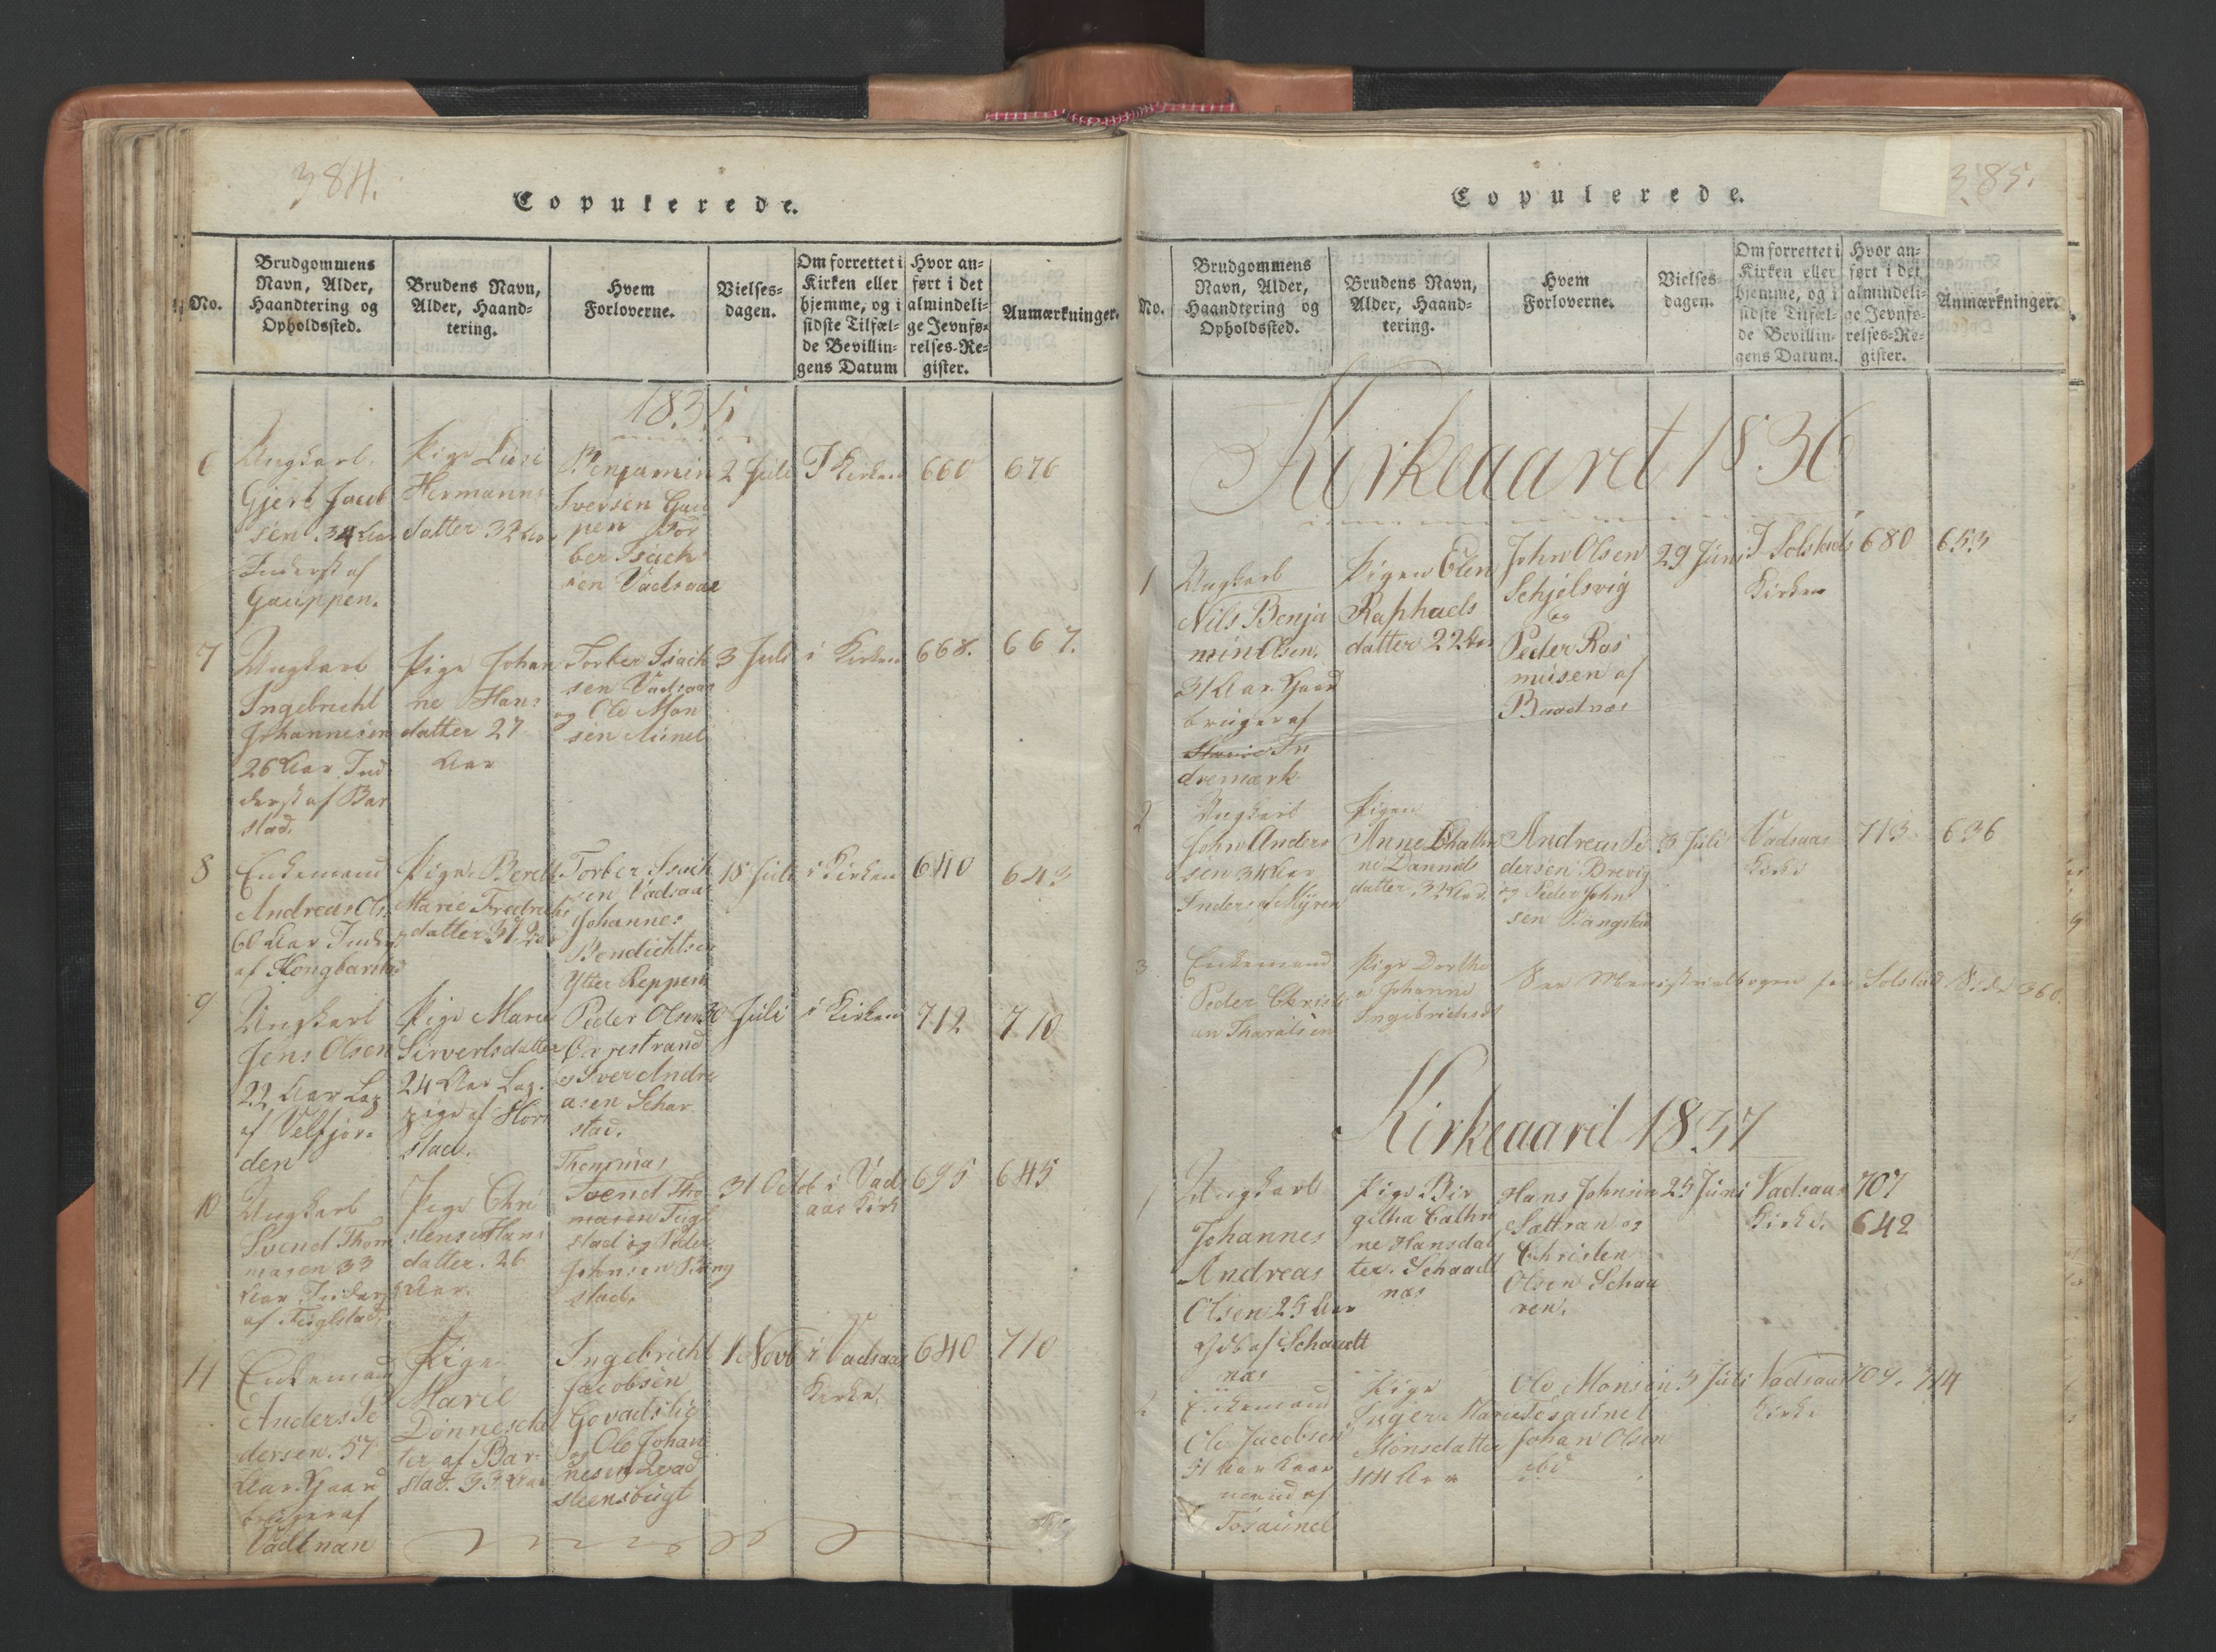 384.
Copulerede.
No.
Brudgommens
Navn, Alder,
Haandtering og
Opholdssted.
Brudens Navn,
Alder, Haand-
tering.
Hvem
Forloverne.
Vielses-
dagen.
Om forrettet i
Kirken eller
hjemme, og i
sidste Tilfæl-
de Bevillin-
gens Datum
Hvor an-
ført i det
almindeli-
ge Jevnfø-
relses-Re-
gister.
Anmærkninger.
1835
6
Ungkarl
Gjert Jacob
sen 34 Aar
Inderst af
Gauppen.
Pige Lusi
Hermanns
datter 32 Aar
Benjamin
Iversen Gau
pen
Tor
ber Isach
sen Vadsaas
2 Juli
I Kirken
660
676
7
Ungkarl
Ingebricht
Johannesen
26 Aar Ind
derst af Bar
stad.
Pige Johan
ne Hans
datter 27
Aar
Torber Isach
sen Vadsaas
og Ole Mon
sen
3 Juli
i Kirken
668.
667.
8
Enkemand
Andreas Ols.
60 Aar Inderst
af Hongbarstad
Pige Berett
Marie Fredrichs
datter 37 Aar
Torber Isach
sen Vadsaas
Johannes
Bendichtsen
Ytter Reppen
18 Juli
i Kirken
640
643
9
Ungkarl
Jens Olsen
22 Aar Lag
af Velfjor-
den
Pige Maren
Sivertsdatter
24 Aar Lag.
pige af Hor
stad.
Peder Olsen
og Iver Andre
asen Schar
stad.
30 Juli
i Kirken
712
710
10
Ungkarl
Svend Thom
masen 33
Aar Inderst
af Fuglstad.
Pige Chri
stense Hans
datter. 26
Aar.
Thommas
Svend Tho
masen Fugl
stad og Peder
Johnsen Rang
stad.
31 Octob
i Vad
aas Kirk
695
645
11
Enkemand
Anders Pe
dersen. 57
Aar. Gaard
bruger af
Pige
Marie
Dønnesdat
ter af Bar-
stad. 33 Aar
Ingebricht
Jacobsen
og Ole Johan
nesen Qvad
steensbugt
1 Novb
i Vadsaas
Kirke.
640
710
385.
Copulerede.
No.
Brudgommens
Navn, Alder,
Haandtering og
Opholdssted.
Brudens Navn,
Alder, Haand-
tering.
Hvem
Forloverne.
Vielses-
dagen.
Om forrettet i
Kirken eller
hjemme, og i
sidste Tilfæl-
de Bevillin-
gens Datum.
Hvor an-
ført i det
almindeli-
ge Jevnfø-
relses-Re-
gister.
Anmærkninger.
Kirkeaaret 1836
1
Ungkarl
Nils Benja
min Olsen.
31 Aar. Gaard
bruger af
In
dremark
Pigen Elen
Raphaels
datter 22 Aar
John Olsen
Schjelsvig
og
Peder Ras
musen af
Buadnæs
29 Juni
I Solstads
Kirken
680
653
2
Ungkarl
John Anders
sen 34 Aar
Inderst af Myren
Pigen
Anne Chathri
ne Danniels
datter. 32 Aar.
Andreas Pe
dersen Brevig
og Peder John
sen Rangstad
3 Juli
Vadsaas
Kirke
713
636
3
Enkemand
Peder Christi
an Tharalsen
Pige Dorthe
a Johanna
Ingebrichsdt
See Ministerialbogen for Solstad Side 360.
Kirkeaaret 1837
1
Ungkarl
Johannes
Andreas
Olsen 25 Aar
af Schaadt
næs
Pige Bir
githa Cathri
ne Hansdat
ter. Schaadt
næs
Hans Johnsen
Sattran og
Christen
Olsen Schaa
ren.
25 Juni
Vadsaas
Kirke.
707
642
2
Enkemand
Ole Jacobsen
51 Aar Kaar
mand af
Tosaunet
Pige
Inger Marie
Monsdatter
44 Aar
Ole Monsen
Tosaunet
Johan Olsen
ibd
3 Juli
Vadsaas
Kirke
709.
714